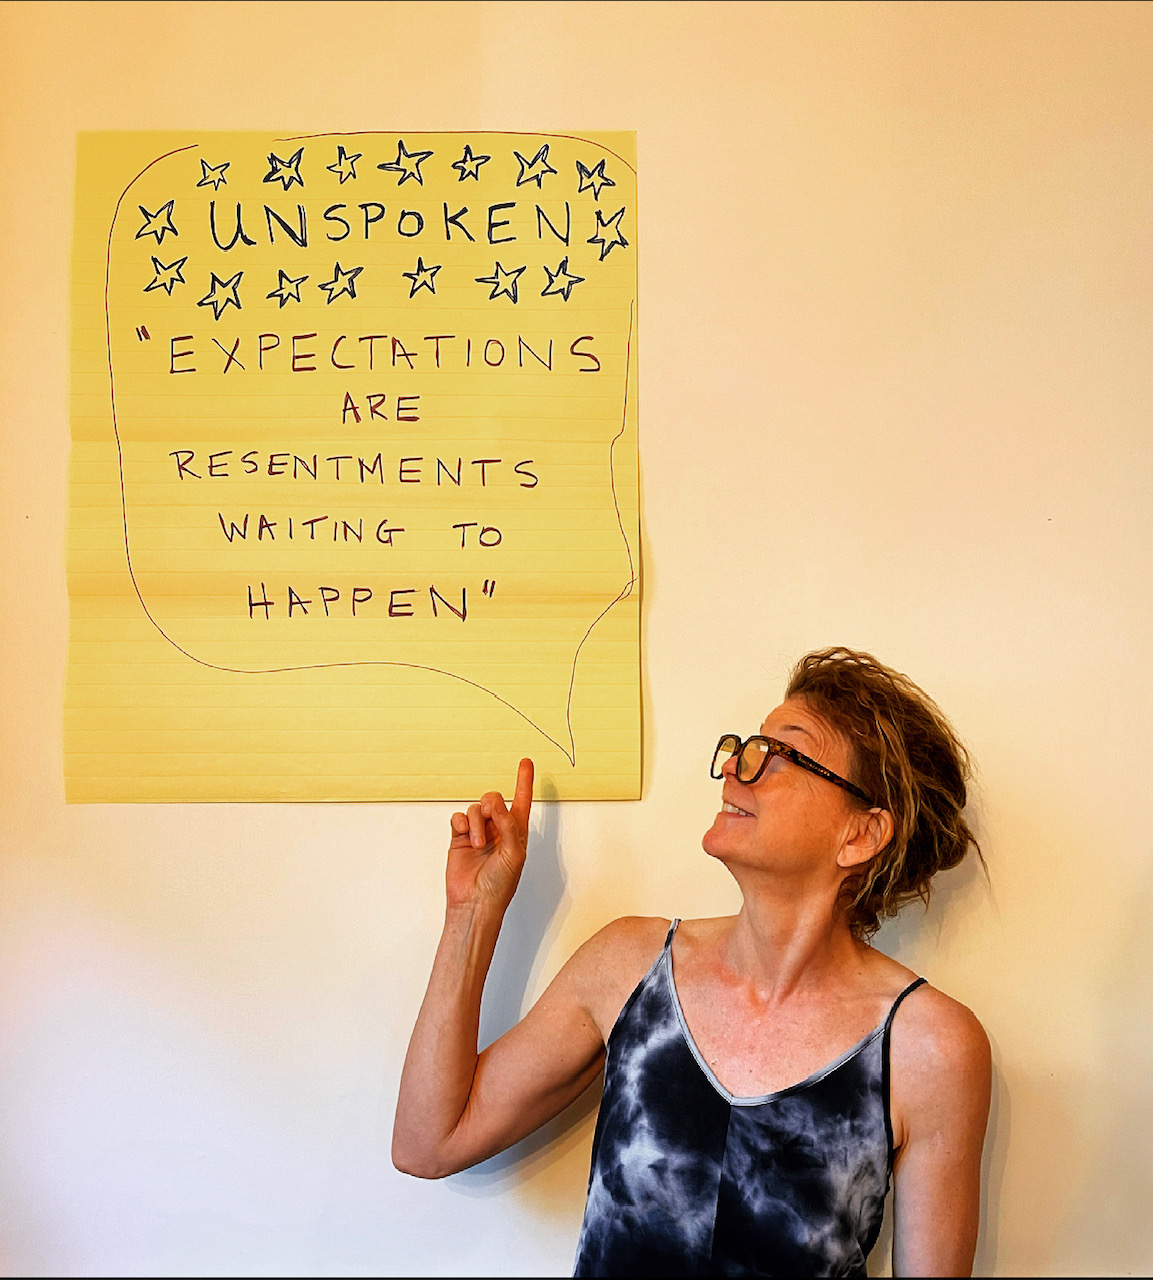 UNSPOKEN
"EXPECTATIONS
ARE
RESENTMENTS
WAITING TO
HAPPEN"